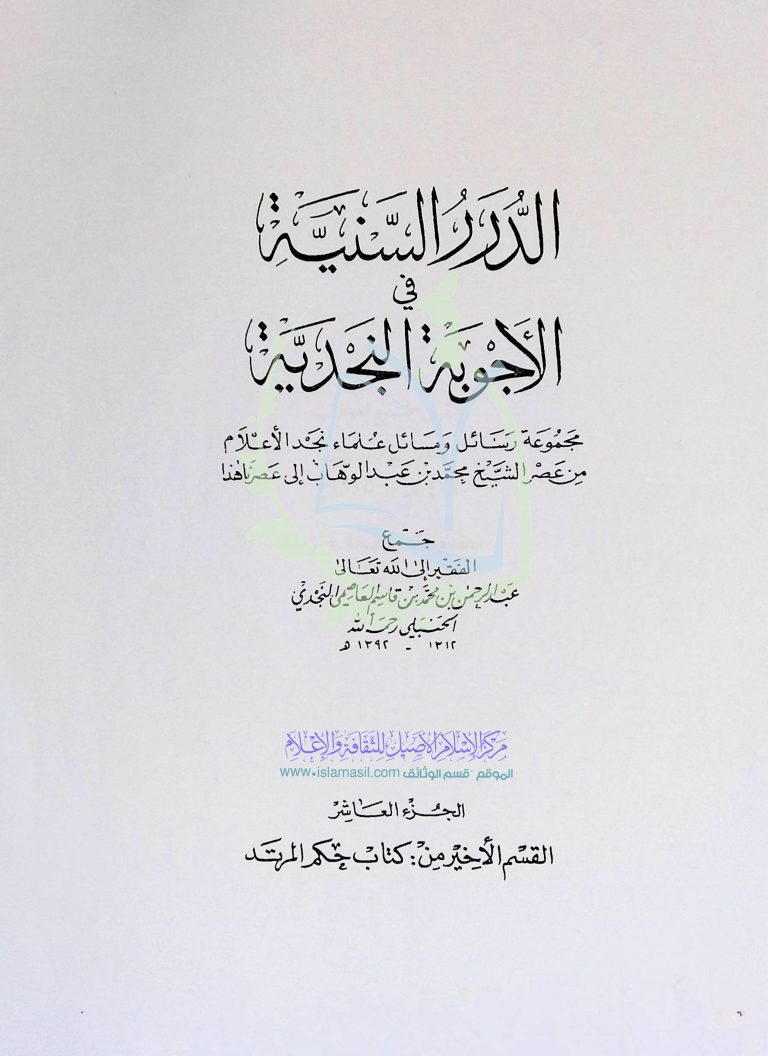 الدُّرَرُ السَّنِيَّةِ
في
الأَجْوِبَةِ النَّجْدِيَّةِ
مَجْمُوعَة رَسَائل وَمسَائل عُلمَاء نَجْد الأعْلَام
مِن عَصْر الشَّيْخ محمَّد بن عَبد الوهّاب إلى عَصرنا هٰذا
جَـمْع
الفَقير إلىٰ اللّه تَعَالىٰ
عَبد الرحمٰن بن محمَّد بن قاسِم العَاصِمي النَّجْدي
الحَنبَلي رحمَه الله
١٣١٢ - ١٣٩٢ هـ
مركز الإسلام الأصيل للثقافة والإعلام
الموقع - قسم الوثائق www.islamasil.com
الجُزء العَاشِر
القسْم الأخِيْر مِنْ: كتابْ حكم المرتَد